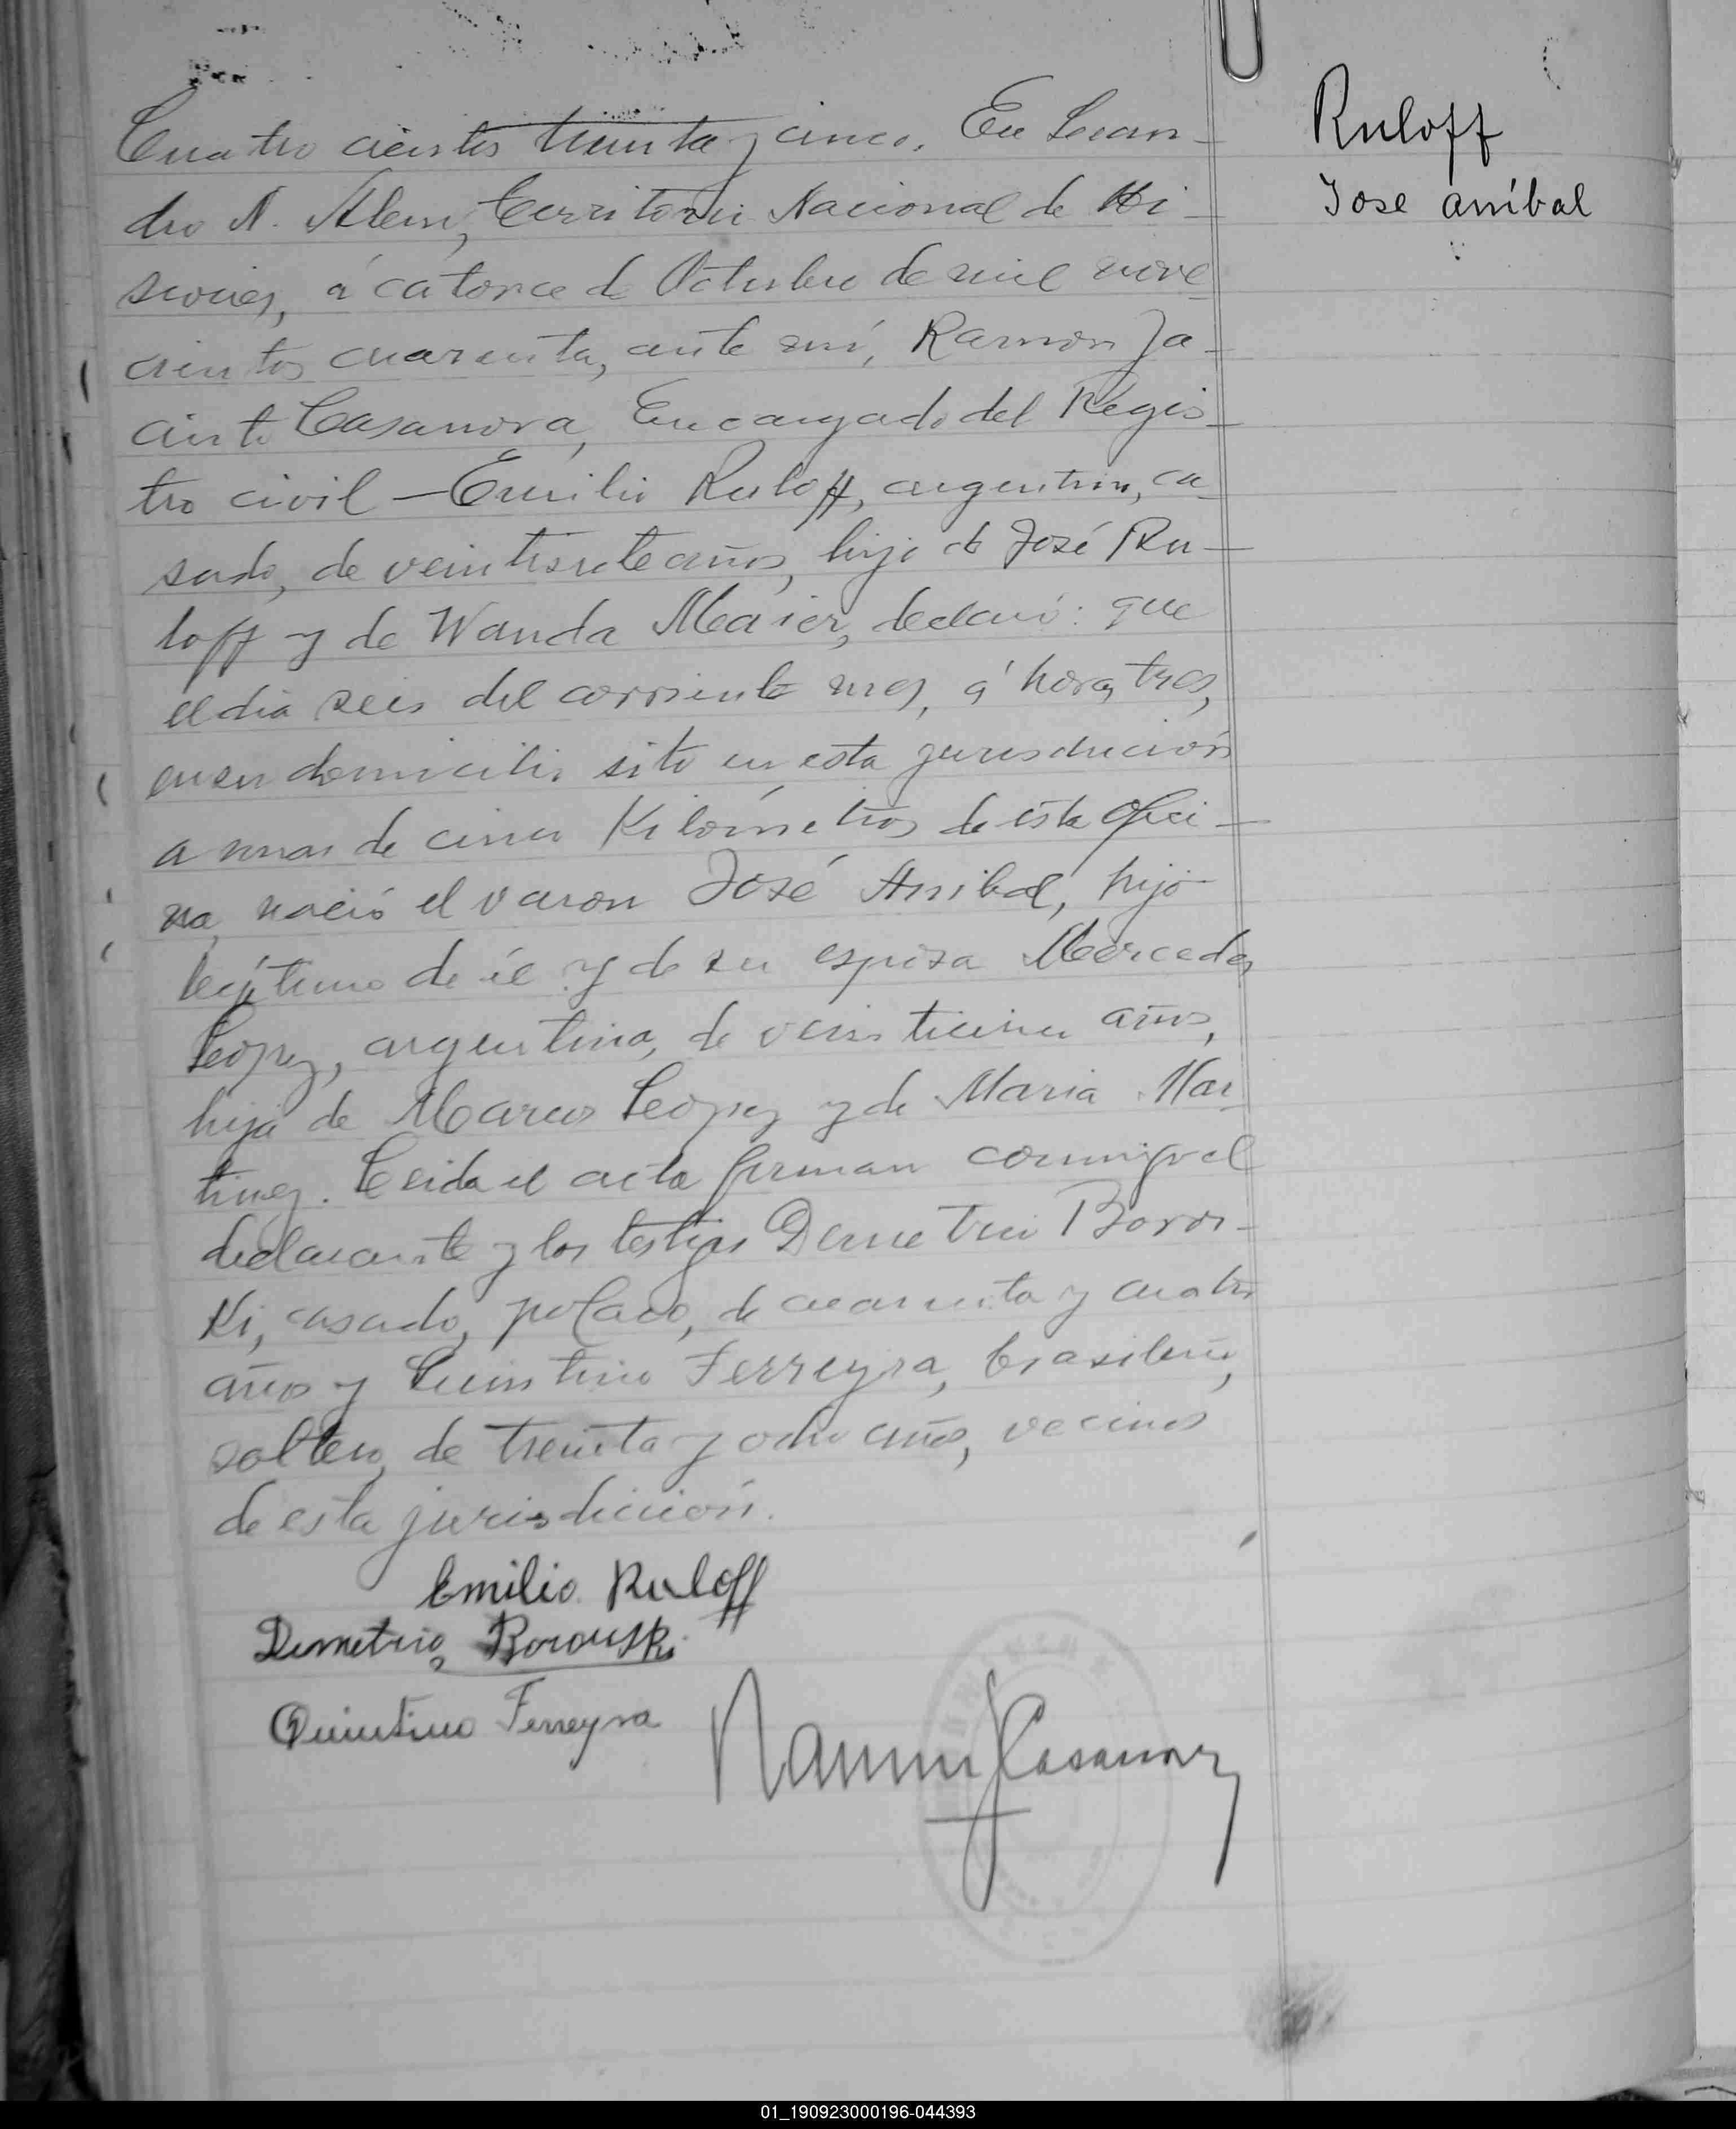 Cuatrocientos treinta y cinco. En Lean-
dro N. Alem, Territorio Nacional de Mi-
siones, á catorce de Octubre de mil nove-
cientos cuarenta, ante mí, Ramon Ja-
cinto Casanova, Encargado del Regis-
tro civil — Emilio Ruloff, argentino, ca-
sado, de veintisiete años, hijo de José Ru-
loff y de Wanda Maier, declaró: que
el dia seis del corriente mes, á horas tres,
en su domicilio sito en esta jurisdiccion
a unos de cinco Kilómetros de esta ofici-
na, nació el varon José Anibal, hijo
legítimo de él y de su esposa Mercedes
Lopez, argentina, de veinticinco años,
hija de Marcos Lopez y de Maria Mar-
tinez. Leida el acta firman conmigo el
declarante y los testigos Demetrio Boros-
ki, casado, polaco, de cuarenta y cuatro
años y Quintino Ferreyra, brasileño,
soltero, de treinta y ocho años, vecinos
de esta jurisdiccion.
Emilio Ruloff
Demetrio Borouski
Quintino Ferreyra
Ramon J Casanova
Ruloff
Jose anibal
01_190923000196-044393